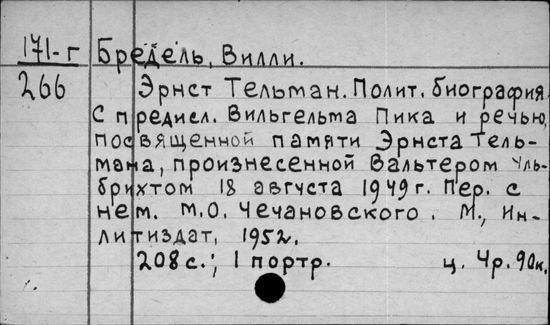 171-г Бредель, Вилли.
266 Эрнст Тельман. Полит. биография.
С предисл. Вильгельма Пика и речью,
посвященной памяти Эрнста Тель-
мана, произнесенной Вальтером Уль-
брихтом 18 августа 1949 г. Пер. с
нем. М.О. Чечановского. М., Ин-
литиздат, 1952.
208 с.; 1 портр. ц. 4р. 90к.